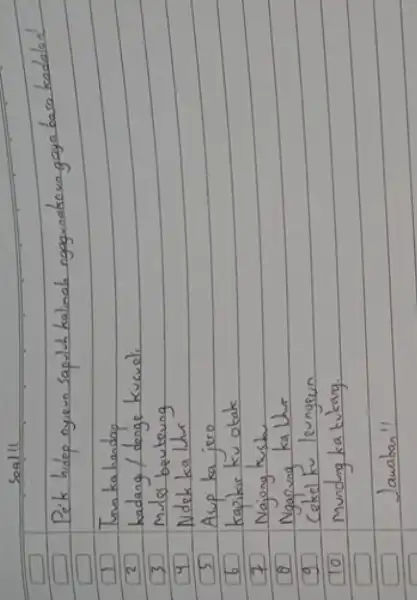 Soal!!
Pek hidep nyieun sapuluh kalimah ngagunakeun gaya basa kadalon!
1 Turun ka handap
2 badang / denge kucueli
3 Mules beuteung
4 Ndek ka lhr
5 Asup ka jero
6 kapikir ku otak
7 Najong kusk
8 Ngapung ka lhr
9 Cekel ku leungeun
10 Mundng ka tukang.
Jawaban!!